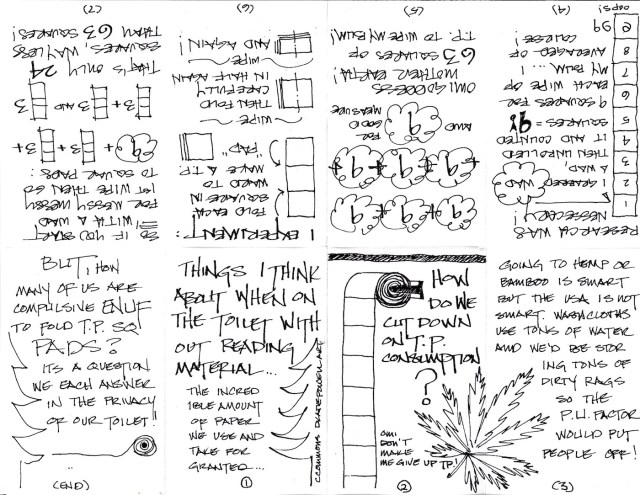 THINGS I THINK
ABOUT WHEN ON
THE TOILET WITH
OUT READING
MATERIAL...
THE INCRED
IBLE AMOUNT
OF PAPER
WE USE AND
TAKE FOR
GRANTED...
CCOMMONS
(1)
HOW
DO WE
CUT DOWN
ON T.P.
CONSUMPTION
?
OMI
DON'T
MAKE
ME GIVE UP TP!
(2)
GOING TO HEMP OR
BAMBOO IS SMART
BUT THE USA IS NOT
SMART. WASHCLOTHS
USE TONS OF WATER
AND WE'D BE STOR
ING TONS OF
DIRTY RAGS
SO THE
P.U. FACTOR
WOULD PUT
PEOPLE OFF!
(3)
RESEARCH WAS
NESSECERY!
I GRABBED
A WAD,
WAD
THEN UNROLLED
IT AND COUNTED
SQUARES = 9!
9 SQUARES FOR
EACH WIPE OF
MY BUM... I
AVERAGED
COLLEGE!
1
2
3
4
5
6
7
8
9
99
OOPS!
(4)
9 + 9 + 9 +
9 + 9 + 9 +
AND 9 FOR
GOOD
MEASURE
OMIGODDESS
MOTHER EARTH!
63 SQUARES OF
T.P. TO WIPE MY BUM!
(5)
I EXPERIMENT:
FOLD EACH
SQUARE IN
WARD TO
MAKE A T.P.
"PAD"
WIPE
THEN FOLD
CAREFULLY
IN HALF AGAIN
WIPE
AND AGAIN!
(6)
SO IF YOU START
WITH A WAD
FOR MESSY MESSY
1ST WIPE THEN GO
TO SQUARE PADS:
9 + 3 + 3 +
3 + 3 AND 3
THAT'S ONLY 24
SQUARES, WAY LESS
THAN 63 SQUARES!
(7)
BUT, HOW
MANY OF US ARE
COMPULSIVE ENUF
TO FOLD T.P. SQ
PADS?
ITS A QUESTION
WE EACH ANSWER
IN THE PRIVACY
OF OUR TOILET!
(END)